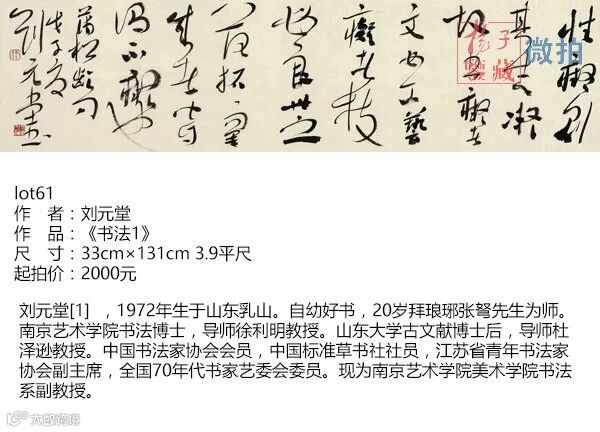 性癡则
其志凝
故书癡者
文必工艺
癡者技
必良世之
落拓而
蒲松龄句
刘元堂书
扬子
鉴藏
微拍
lot61
作 者：刘元堂
作 品：《书法1》
尺 寸：33cm×131cm 3.9平尺
起拍价：2000元
刘元堂[1] ，1972年生于山东乳山。自幼好书，20岁拜琅琊张弩先生为师。
南京艺术学院书法博士，导师徐利明教授。山东大学古文献博士后，导师杜
泽逊教授。中国书法家协会会员，中国标准草书社社员，江苏省青年书法家
协会副主席，全国70年代书家艺委会委员。现为南京艺术学院美术学院书法
系副教授。
大数跨境